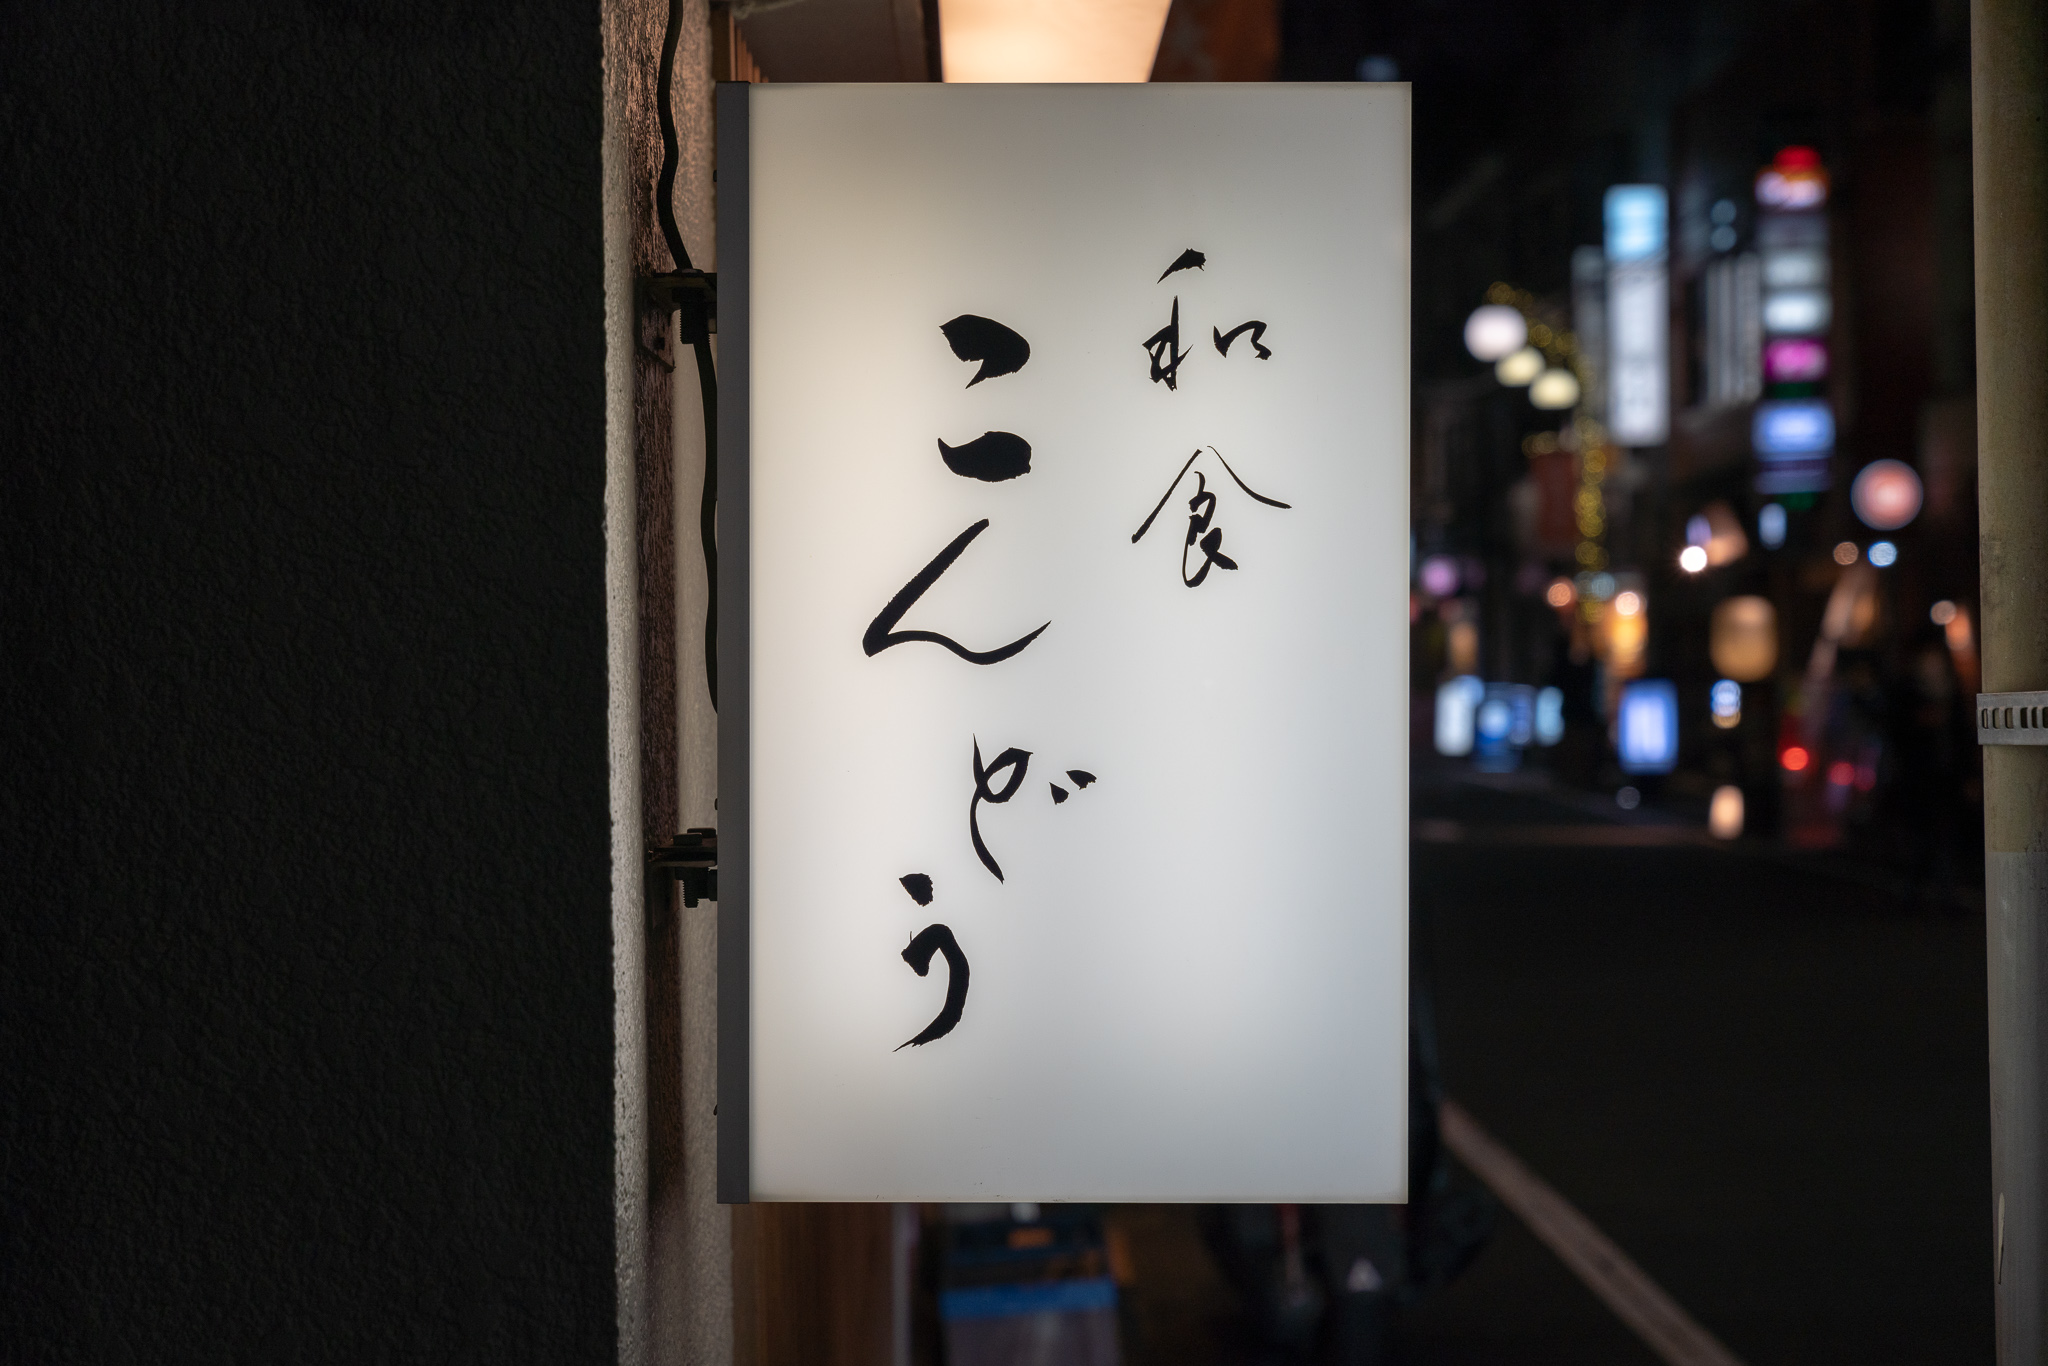 和食
こんどう